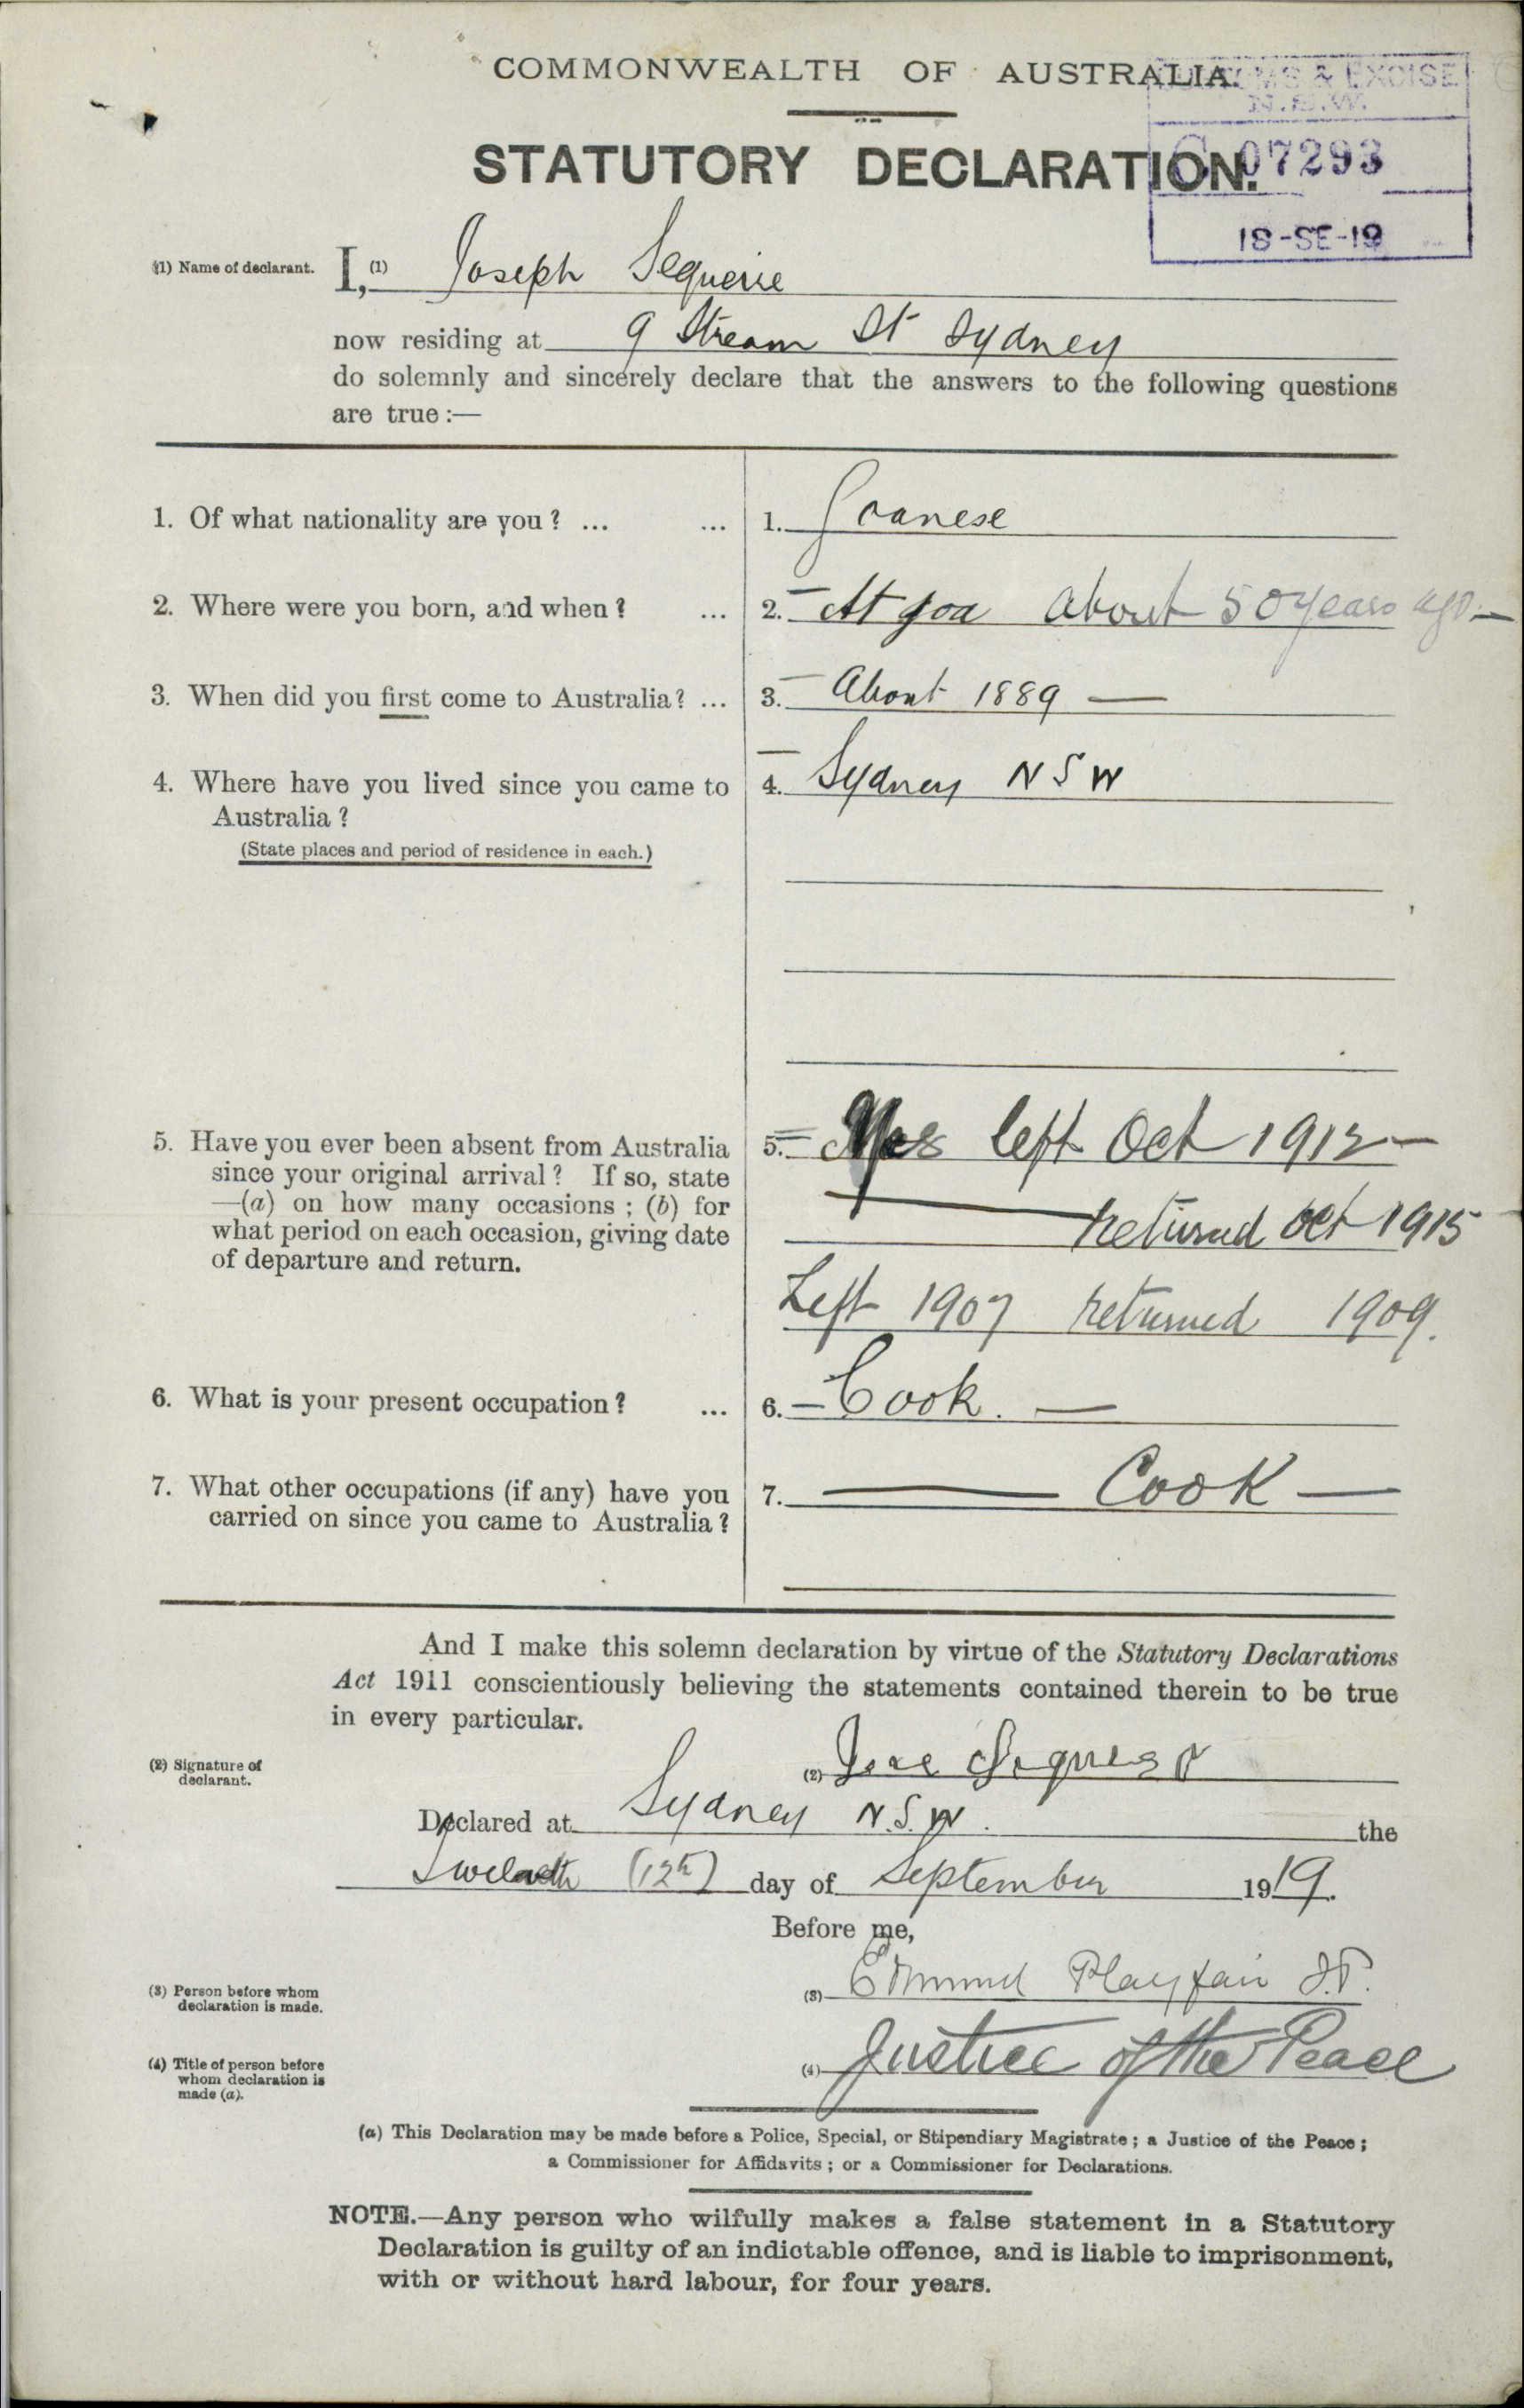 COMMONWEALTH OF AUSTRALIA.
CUSTOMS & EXCISE
N.S.W.
STATUTORY DECLARATION.
C 07293
18-SE-19
(1) Name of declarant. I, (1) Joseph Sequeire
now residing at 9 Stream St Sydney
do solemnly and sincerely declare that the answers to the following questions
are true:—
1. Of what nationality are you? ... ... 1. Goanese
2. Where were you born, and when? ... 2. At goa about 50 years ago—
3. When did you first come to Australia? ... 3. About 1889 —
4. Where have you lived since you came to 4. Sydney N S W
Australia?
(State places and period of residence in each.)
5. Have you ever been absent from Australia 5. Yes left Oct 1912—
since your original arrival? If so, state
—(a) on how many occasions; (b) for
what period on each occasion, giving date returned Oct 1915
of departure and return.
Left 1907 returned 1909.
6. What is your present occupation? ... 6. — Cook. —
7. What other occupations (if any) have you 7. — Cook —
carried on since you came to Australia?
And I make this solemn declaration by virtue of the Statutory Declarations
Act 1911 conscientiously believing the statements contained therein to be true
in every particular.
(2) Signature of
declarant.
(2) Jose
Declared at Sydney N.S.W. the
(12th) day of September 1919.
Before me,
(3) Person before whom
declaration is made.
(3) Edmund Playfair J.P.
(4) Title of person before
whom declaration is
made (a).
(4) Justice of the Peace
(a) This Declaration may be made before a Police, Special, or Stipendiary Magistrate; a Justice of the Peace;
a Commissioner for Affidavits; or a Commissioner for Declarations.
NOTE.—Any person who wilfully makes a false statement in a Statutory
Declaration is guilty of an indictable offence, and is liable to imprisonment,
with or without hard labour, for four years.